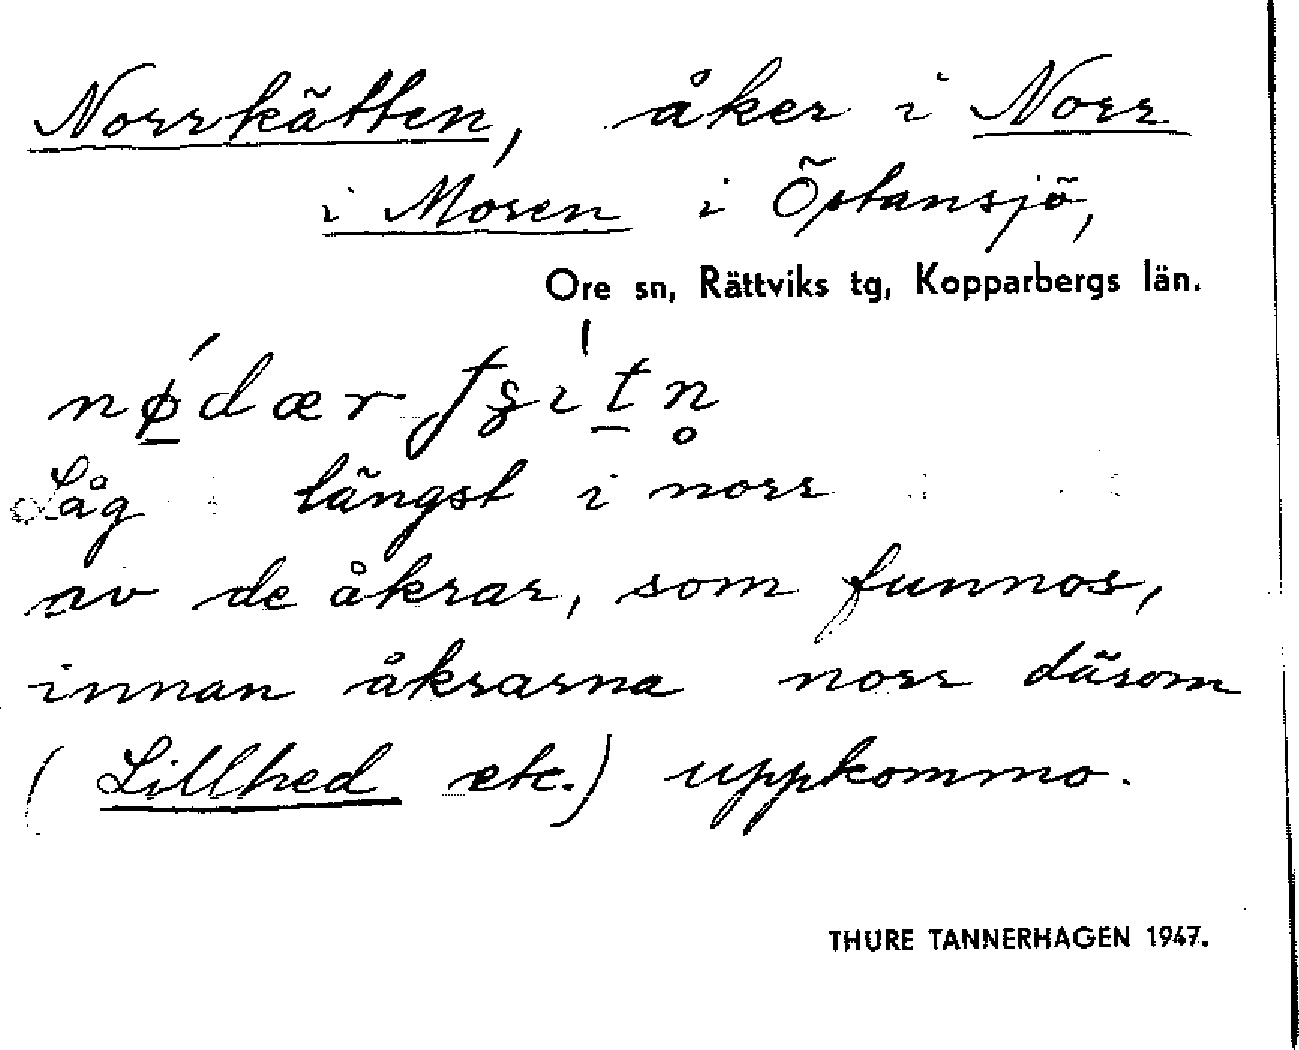 Norrkätten, åker i Norr
i Moren i Östansjö,
Ore sn, Rättviks tg, Kopparbergs län.
Låg längst i norr
av de åkrar, som funnos,
innan åkrarna norr därom
(Lillhed etc.) uppkommo.
THURE TANNERHAGEN 1947.